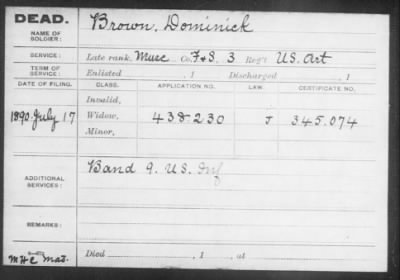 DEAD.
NAME OF SOLDIER:
Brown, Dominick
SERVICE:
Late rank, Musc Co. F&S. 3 Reg't US. Art
TERM OF SERVICE:
Enlisted , 1 Discharged , 1
DATE OF FILING. CLASS. APPLICATION NO. LAW. CERTIFICATE NO.
Invalid,
1890. July 17 Widow, 438.230 J 345.074
Minor,
ADDITIONAL SERVICES:
Band 9. US. Inf
REMARKS:
Died , 1 , at